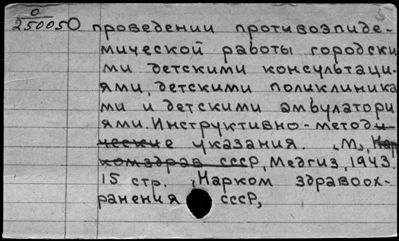 О
250050 проведении противоэпиде-
мической работы городски
ми детскими консультаци-
ями, детскими поликлиника
ми и детскими амбулатори
ями. Инструктивно-методи-
ческие указания. М., Нар
комздрав СССР, Медгиз, 1943.
15 стр. , Нарком здравоох-
ранения СССР,